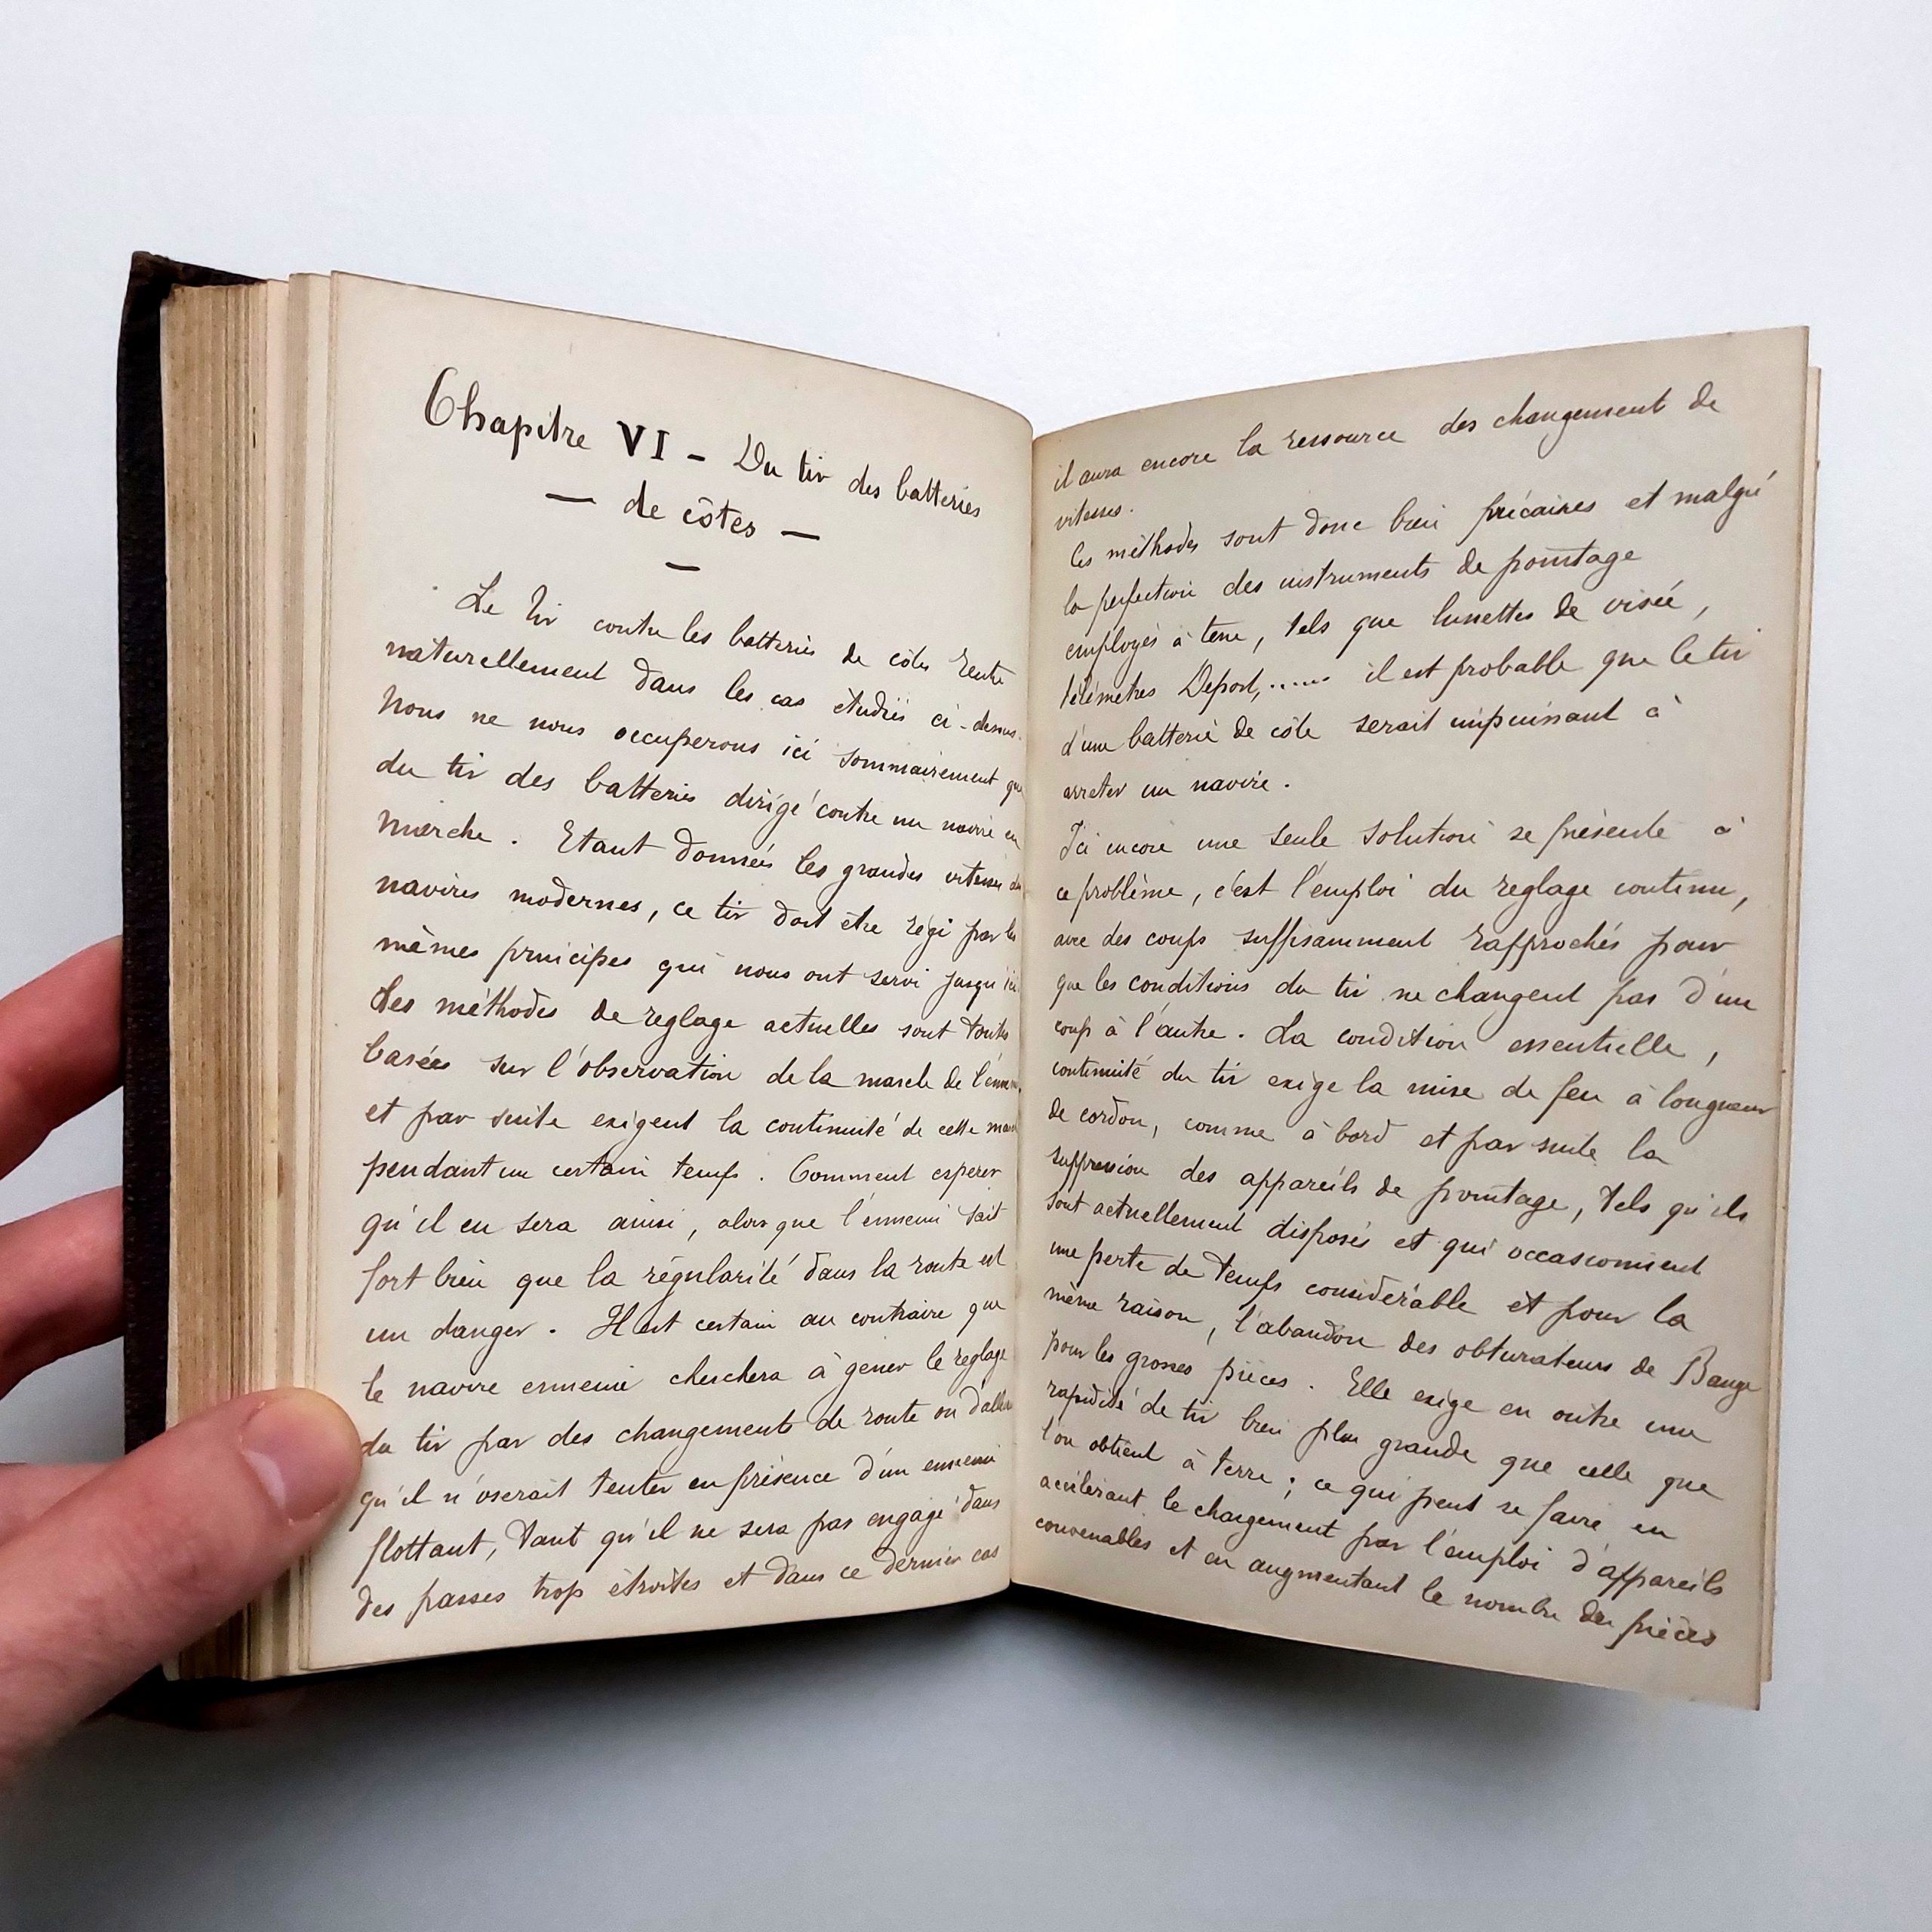 Chapitre VI - Du tir des batteries
— de côtes —
Le tir contre les batteries de côtes rentre
naturellement dans les cas étudiés ci-dessus.
Nous ne nous occuperons ici sommairement que
du tir des batteries dirigé contre un navire en
marche. Etant données les grandes vitesses des
navires modernes, ce tir doit être régi par les
mêmes principes qui nous ont servi jusqu'ici.
Les méthodes de reglage actuelles sont toutes
basées sur l'observation de la marche de
et par suite exigent la continuité de cette
pendant un certain temps. Comment esperer
qu'il en sera ainsi, alors que l'ennemi sait
fort bien que la régularité dans la route est
un danger. Il est certain au contraire que
le navire ennemi cherchera à gener le reglage
du tir par des changements de route ou
qu'il n'oserait tenter en présence d'un ennemi
flottant, tant qu'il ne sera pas engagé dans
des passes trop étroites et dans ce dernier cas
il aura encore la ressource des changement de
vitesses.
Ces méthodes sont donc bien précaires et malgré
la perfection des instruments de pointage
employés à terre, tels que lunettes de visée,
télémètres Deport,...... il est probable que le tir
d'une batterie de côte serait impuissant à
arreter un navire.
Ici encore une seule solution se présente à
ce problème, c'est l'emploi du reglage continu,
avec des coups suffisamment rapprochés pour
que les conditions du tir ne changent pas d'un
coup à l'autre. La condition essentielle,
continuité du tir exige la mise de feu à longueur
de cordon, comme à bord et par suite la
suppression des appareils de pointage, tels qu'ils
sont actuellement disposés et qui occasionnent
une perte de temps considérable et pour la
même raison, l'abandon des obturateurs de Bange
pour les grosses pièces. Elle exige en outre une
rapidité de tir bien plus grande que celle que
l'on obtient à terre; ce qui peut se faire en
accélérant le chargement par l'emploi d'appareils
convenables et en augmentant le nombre des pièces